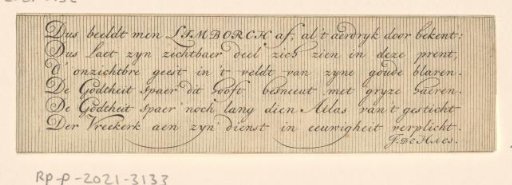 Dus beeldt men LIMBORCH af, al't aerdryk door bekent:
Dus laet zyn zichtbaer deel zich zien in deze prent,
d' onzichtbre geest in 't veldt van zyne goude blaren.
De Godtheit spaer' dit hooft besneeut met gryze haeren.
De Godtheit spaer' noch lang dien Atlas van't gesticht
Der Vreekerk aen zyn dienst in eeuwigheit verplicht.
J. DE HAES.
RP-P-2021-3133